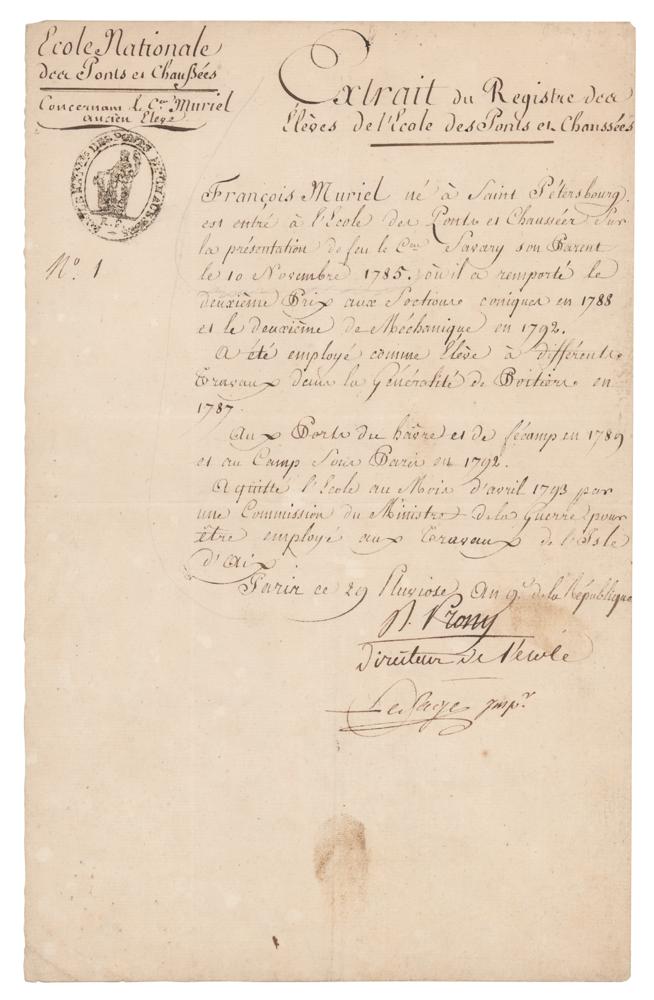 Ecole Nationale
des Ponts et Chaussées
Concernant le C.en Muriel
ancien Eleve
N.o 1
Extrait du Registre des
Élèves de l'Ecole des Ponts et Chaussées
François Muriel né à Saint Pétersbourg.
est entré à l'Ecole des Ponts et Chaussées sur
la présentation de feu le C.en Savary son Parent
le 10 Novembre 1785. où il a remporté le
deuxième Prix aux Sections coniques en 1788
et le deuxième de Méchanique en 1792.
A été employé comme Elève à différents
Travaux dans la Généralité de Poitiers en
1787.
Aux Ports du hâvre et de fécamp en 1789
et au Camp sous Paris en 1792.
A quitté l'Ecole au Mois d'avril 1793 par
une Commission du Ministre de la Guerre pour
être employé aux Travaux de l'Isle
d'Aix
Paris ce 29 Pluviose An 9.e de la République
R. Prony
Directeur de l'ecole
LeSage insp.r